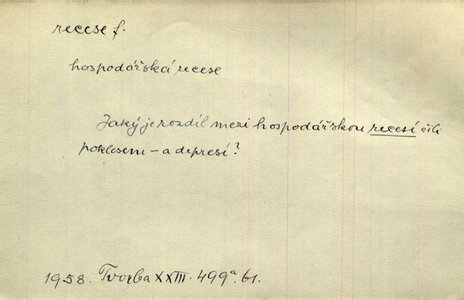 recese f.
hospodářská recese
Jaký je rozdíl mezi hospodářskou recesí čili
poklesem – a depresí?
1958. Tvorba XXIII. 499a. 61.